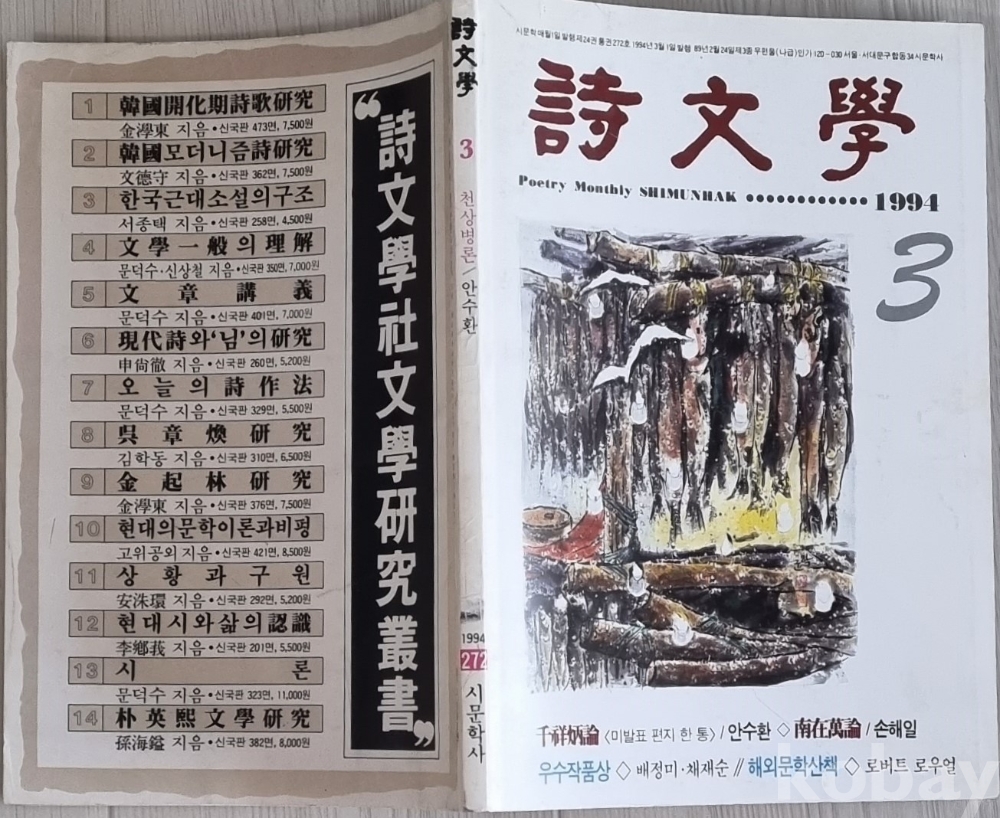 1 韓國開化期詩歌研究
金澤東 지음 • 신국판 473면, 7,500원
2 韓國모더니즘詩研究
文德守 지음 • 신국판 362면, 7,500원
3 한국근대소설의구조
서종택 지음 • 신국판 258면, 4,500원
4 文學一般의理解
문덕수·신상철 지음 • 신국판 350면, 7,000원
5 文章講義
문덕수 지음 • 신국판 401면, 7,000원
6 現代詩와‘님’의研究
申尙徹 지음 • 신국판 260면, 5,200원
7 오늘의詩作法
문덕수 지음 • 신국판 329면, 5,500원
8 吳章煥研究
김학동 지음 • 신국판 310면, 6,500원
9 金起林研究
金澤東 지음 • 신국판 376면, 7,500원
10 현대의문학이론과비평
고위공외 지음 • 신국판 421면, 8,500원
11 상황과구원
安洙環 지음 • 신국판 292면, 5,200원
12 현대시와삶의認識
李鄕莪 지음 • 신국판 201면, 5,500원
13 시론
문덕수 지음 • 신국판 323면, 11,000원
14 朴英熙文學研究
孫海鎰 지음 • 신국판 382면, 8,000원
“詩文學社文學研究叢書”
詩文學
3
천상병론/안수환
1994
272
시문학사
시문학 매월1일 발행 제24권 통권272호 1994년 3월 1일 발행 89년 2월 24일 제3종 우편물(나급)인가 120-030 서울·서대문구 합동34 시문학사
詩文學
Poetry Monthly SHIMUNHAK ............ 1994
3
千祥炳論 〈미발표 편지 한 통〉/안수환 ◇ 南在萬論/손해일
우수작품상 ◇ 배정미·채재순 // 해외문학산책 ◇ 로버트 로우얼
kobay